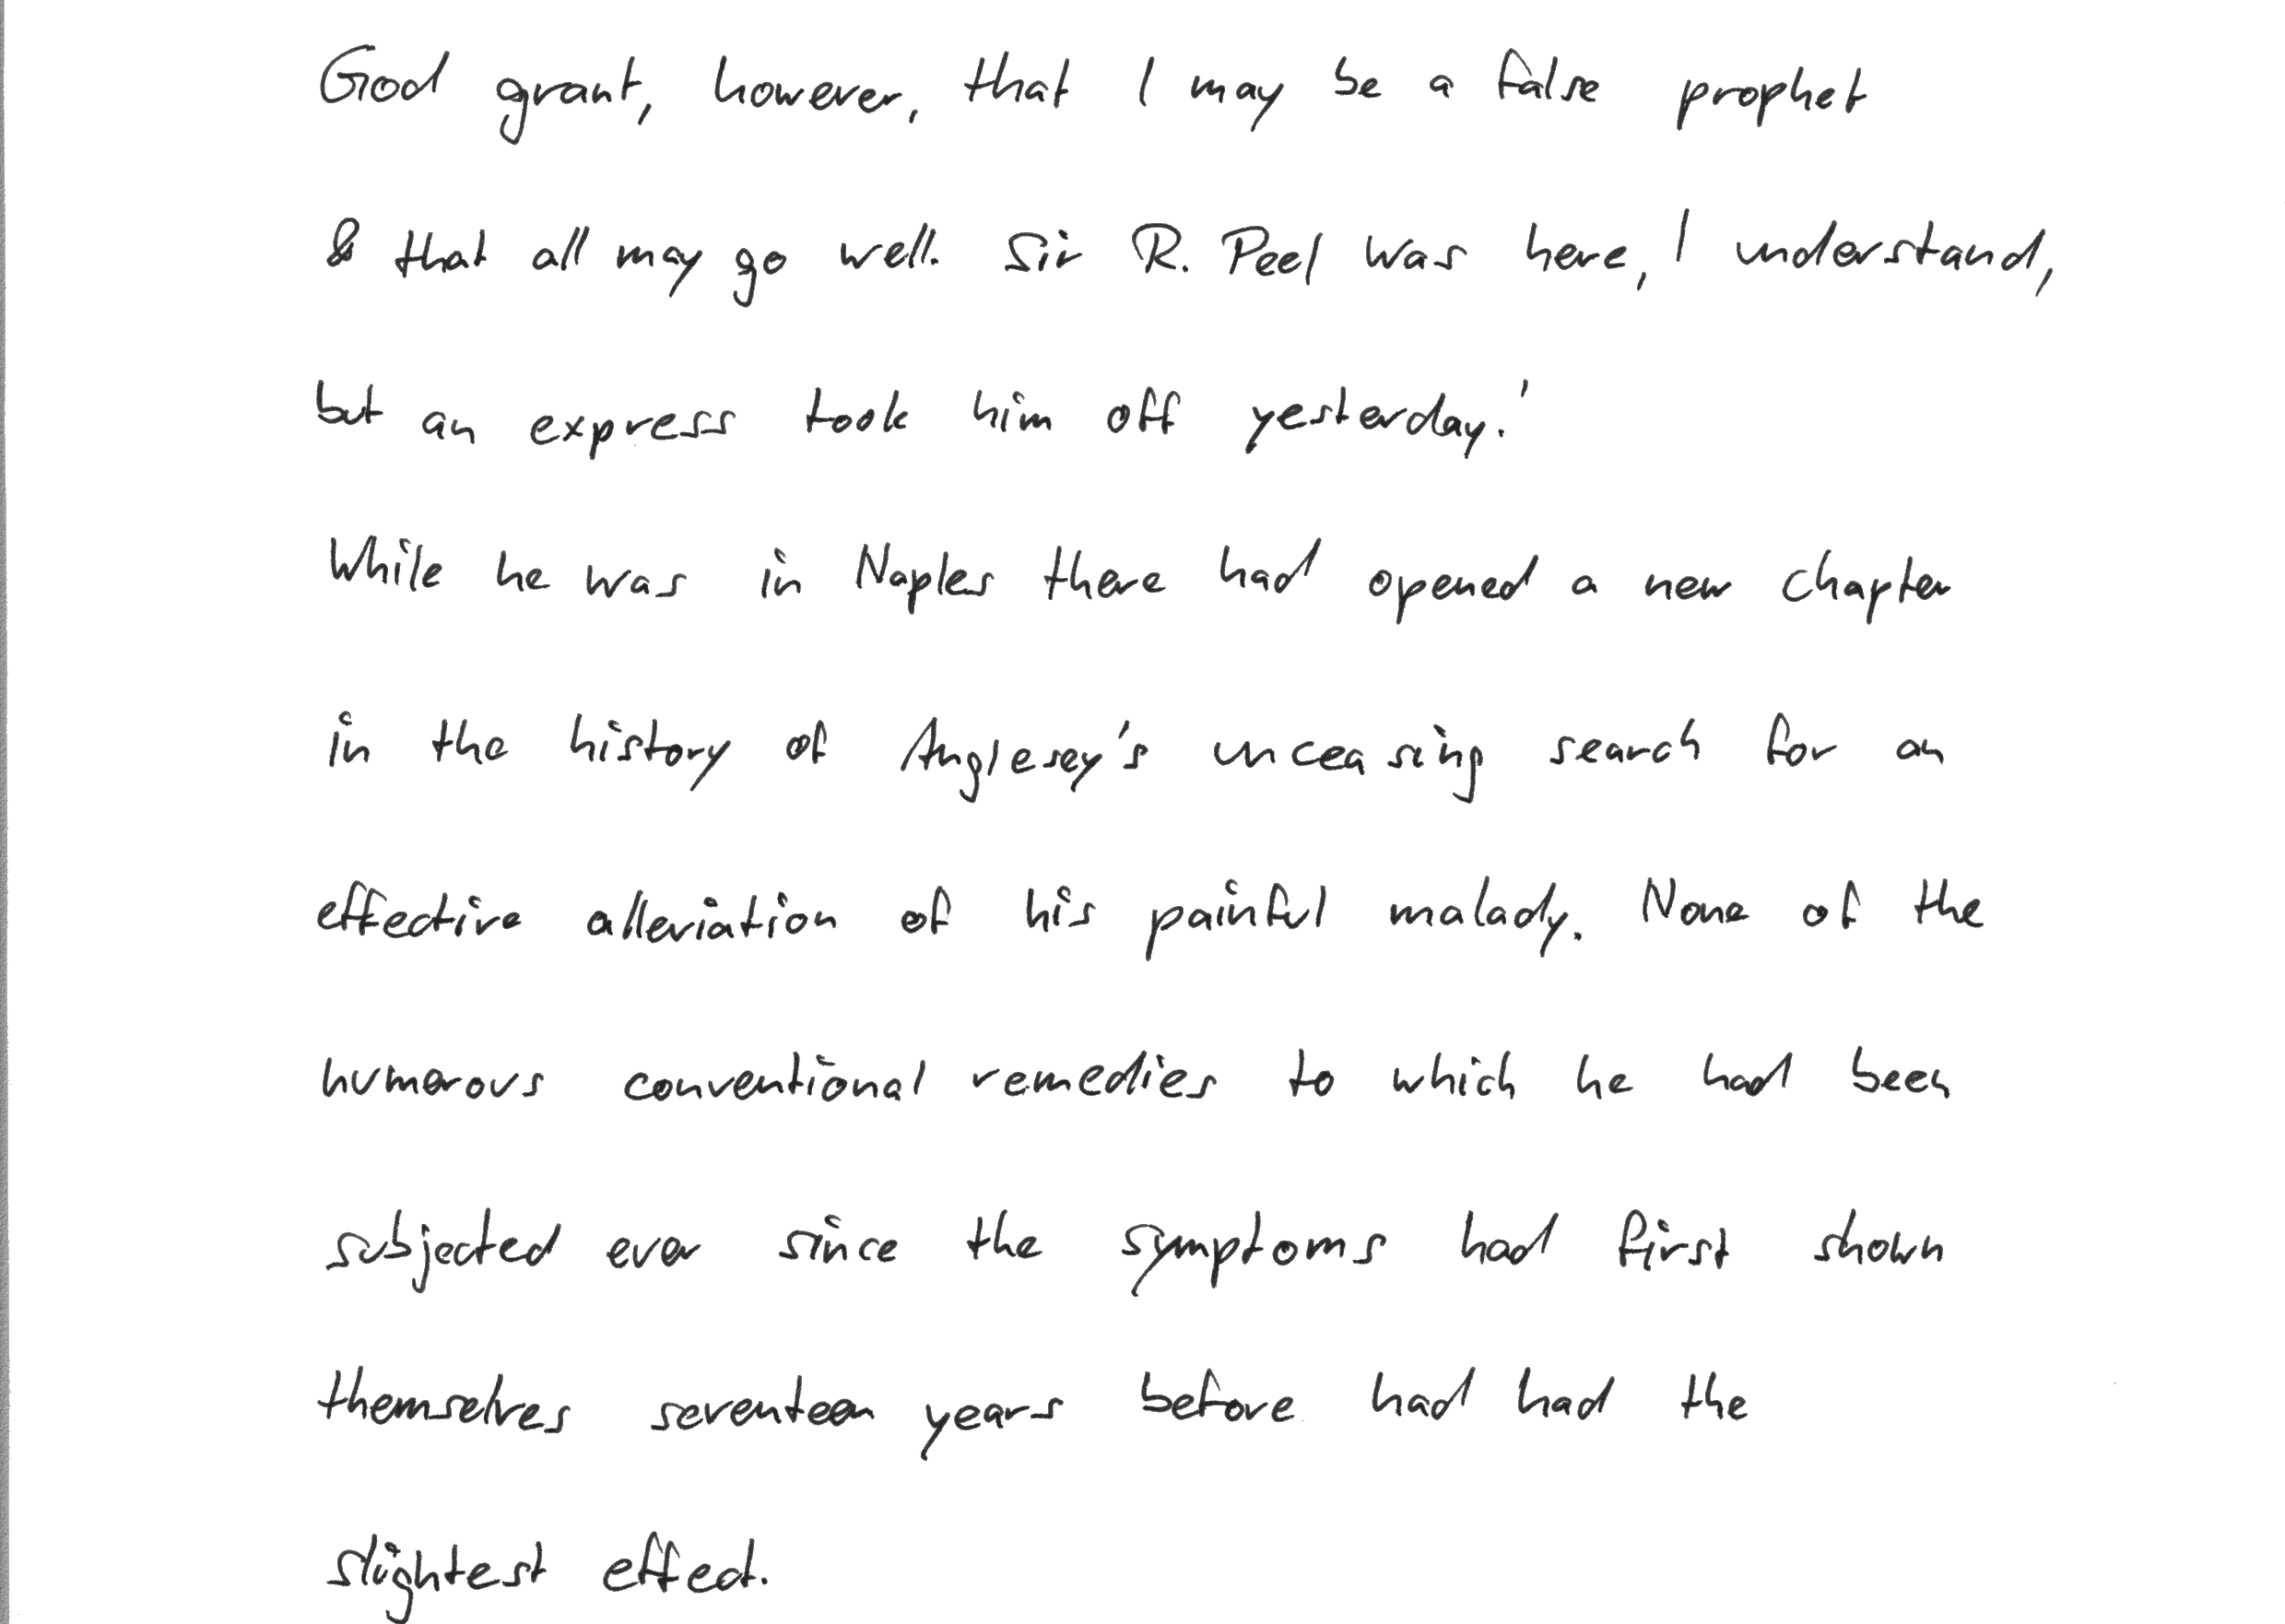 God grant, however, that I may be a false prophet
& that all may go well. Sir R. Peel was here, I understand,
but an express took him off yesterday.'
While he was in Naples there had opened a new chapter
in the history of Anglesey's unceasing search for an
effective alleviation of his painful malady. None of the
humerous conventional remedies to which he had been
subjected ever since the symptoms had first shown
themselves seventeen years before had had the
slightest effect.